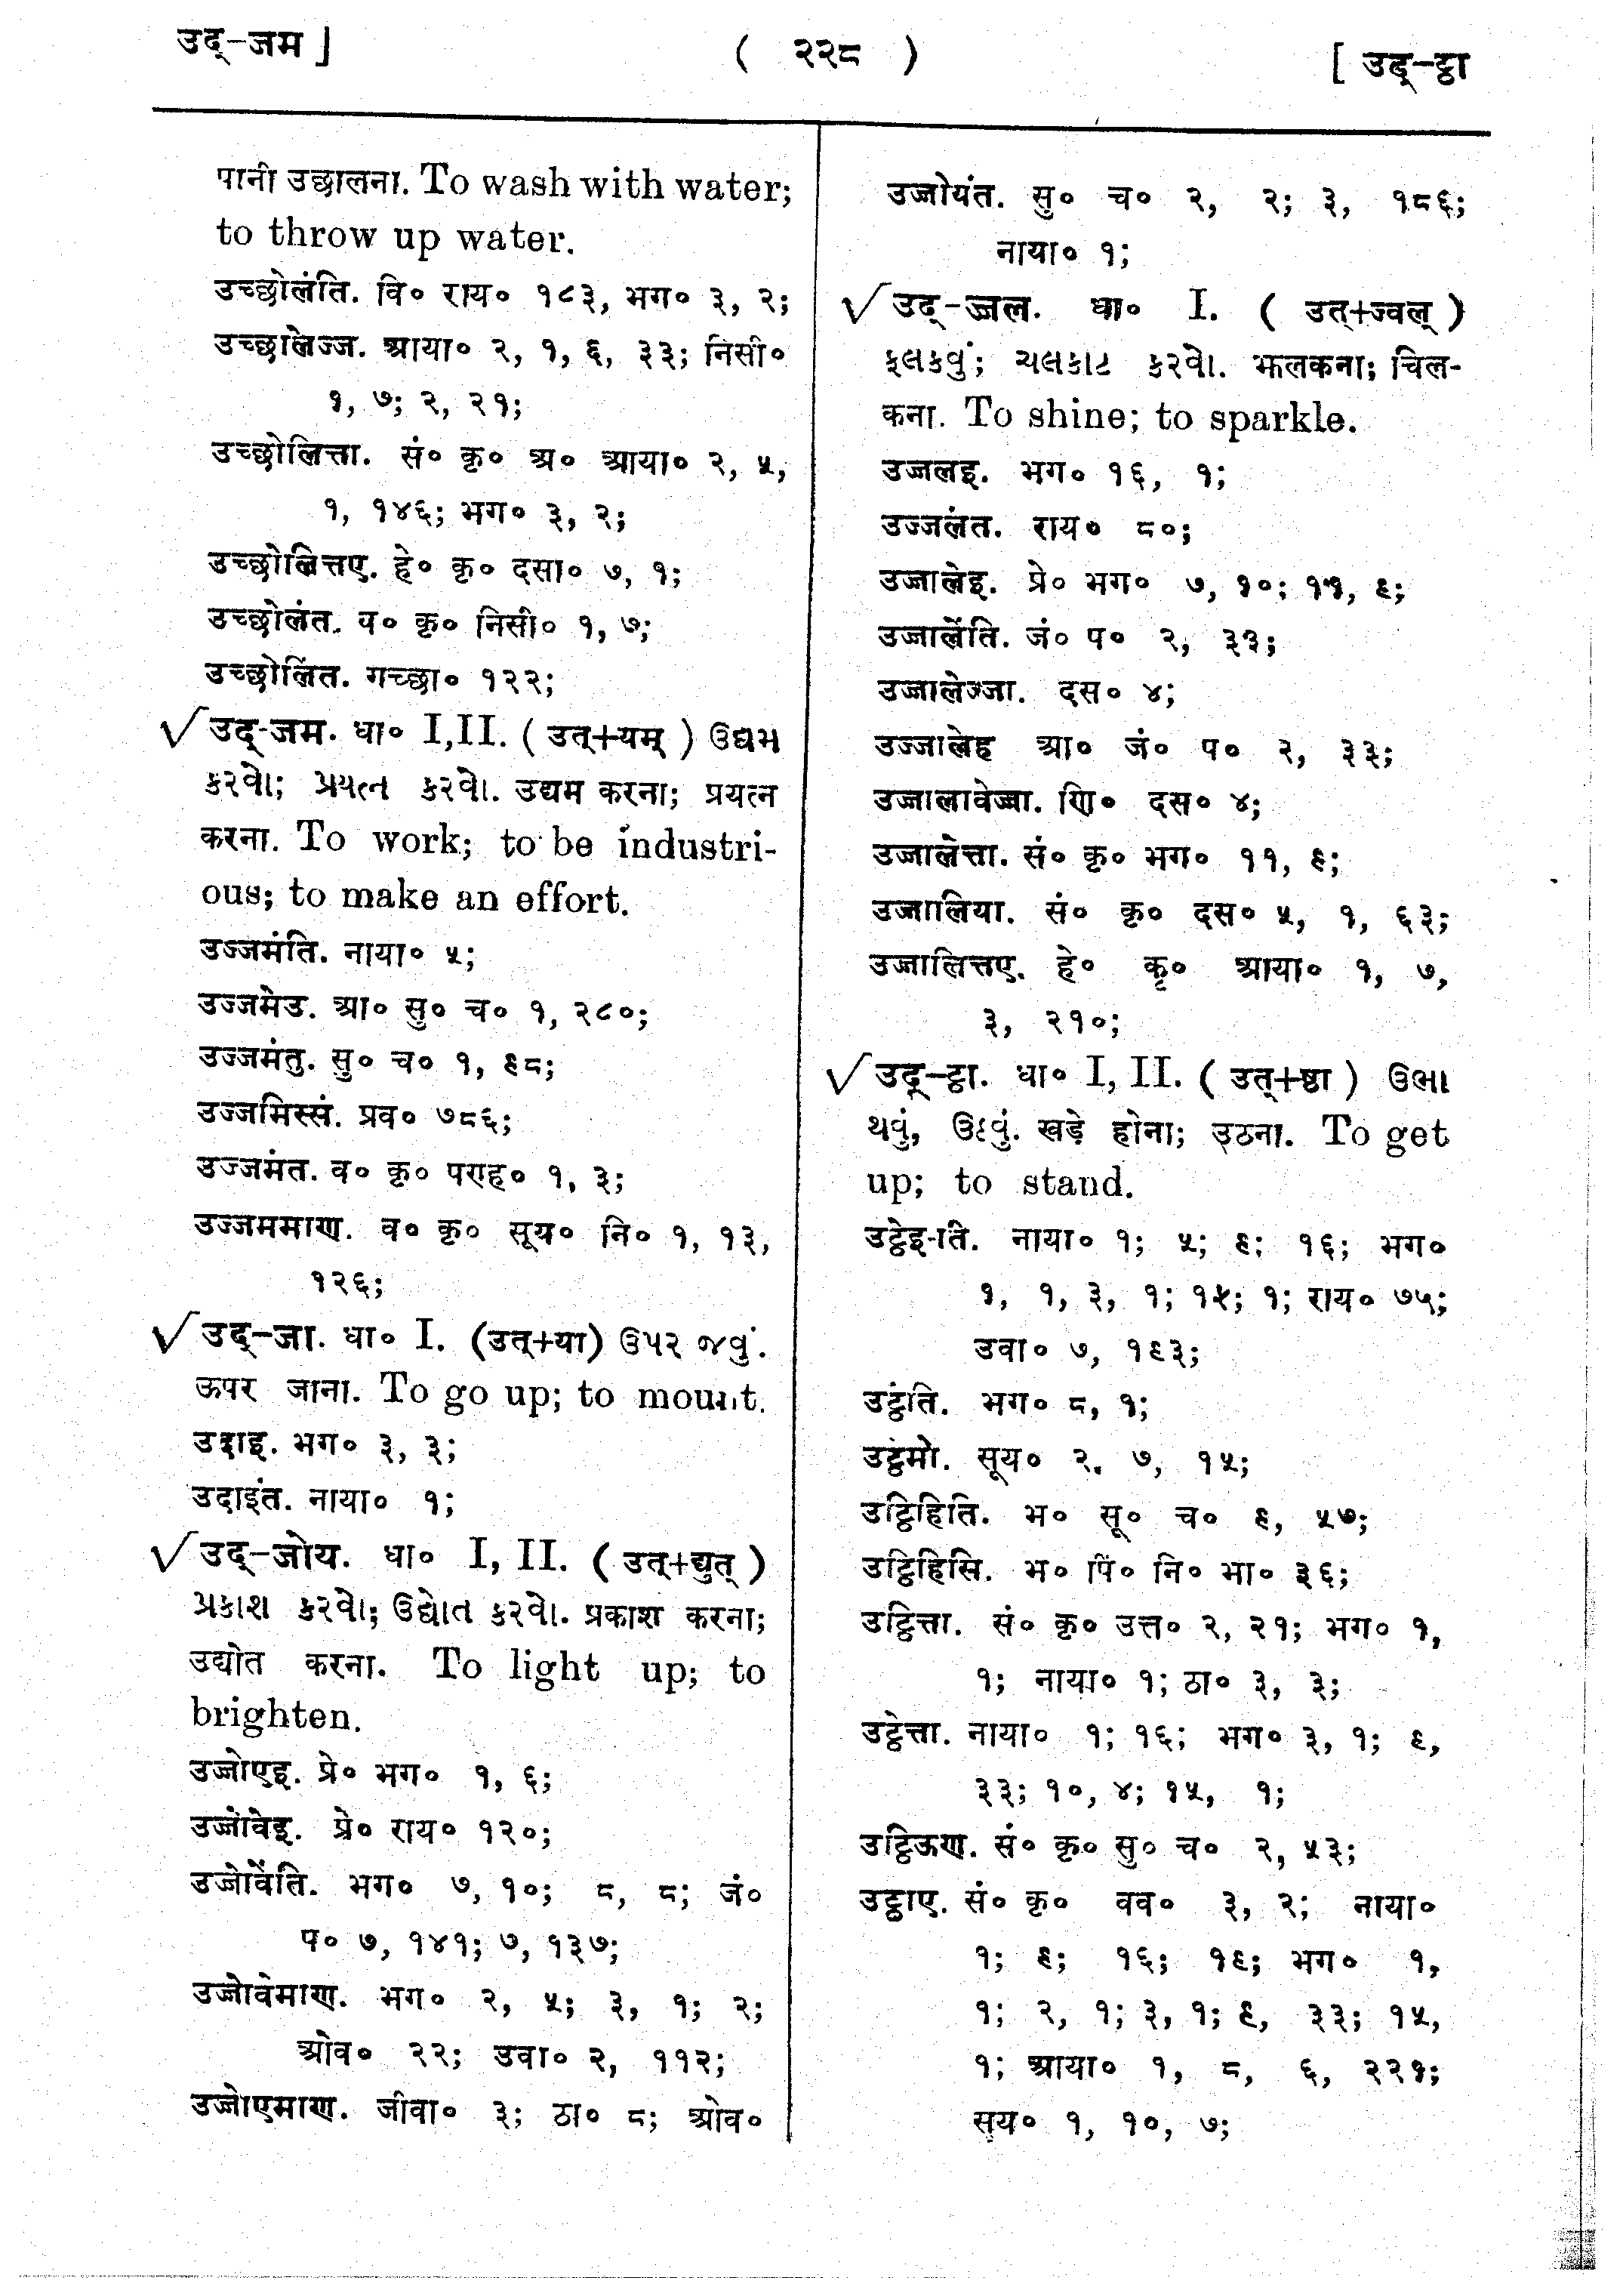 उद्-जम ]
( २२८ )
[ उद्-ट्ठा
पानी उछालना. To wash with water;
to throw up water.
उच्छोलंति. वि० राय० १८३, भग० ३, २;
उच्छालेज्ज. आया० २, १, ६, ३३; निसी०
१, ७; २, २१;
उच्छोलित्ता. सं० कृ० अ० आया० २, ५,
१, १४६; भग० ३, २;
उच्छोलित्तए. हे० कृ० दसा० ७, १;
उच्छोलंत. व० कृ० निसी० १, ७;
उच्छोलिंत. गच्छा० १२२;
√ उद्-जम. धा० I,II. ( उत्+यम् ) ઉદ્યમ
કરવો; પ્રયત્ન કરવો. उद्यम करना; प्रयत्न
करना. To work; to be industri-
ous; to make an effort.
उज्जमंति. नाया० ५;
उज्जमेउ. आ० सु० च० १, २८०;
उज्जमंतु. सु० च० १, ९८;
उज्जमिस्सं. प्रव० ७८६;
उज्जमंत. व० कृ० पण्ह० १, ३;
उज्जममाण. व० कृ० सूय० नि० १, १३,
१२६;
√ उद्-जा. धा० I. (उत्+या) ઉપર જવું.
ऊपर जाना. To go up; to mount.
उद्दाइ. भग० ३, ३;
उदाइंत. नाया० १;
√ उद्-जोय. धा० I, II. ( उत्+द्युत् )
પ્રકાશ કરવો; ઉદ્યોત કરવો. प्रकाश करना;
उद्योत करना. To light up; to
brighten.
उज्जोएइ. प्रे० भग० १, ६;
उज्जोवेइ. प्रे० राय० १२०;
उज्जोवेंति. भग० ७, १०; ८, ८; जं०
प० ७, १४१; ७, १३७;
उज्जोवेमाण. भग० २, ५; ३, १; २;
ओव० २२; उवा० २, ११२;
उज्जोएमाण. जीवा० ३; ठा० ८; ओव०
उज्जोयंत. सु० च० २, २; ३, १८६;
नाया० १;
√ उद्-ज्जल. धा० I. ( उत्+ज्वल् )
ઝલકવું; ચલકાટ કરવો. झलकना; चिल-
कना. To shine; to sparkle.
उज्जलइ. भग० १६, १;
उज्जलंत. राय० ८०;
उज्जालेइ. प्रे० भग० ७, १०; ११, ९;
उज्जालेंति. जं० प० २, ३३;
उज्जालेज्जा. दस० ४;
उज्जालेह आ० जं० प० २, ३३;
उज्जालावेज्जा. णि० दस० ४;
उज्जालेत्ता. सं० कृ० भग० ११, ९;
उज्जालिया. सं० कृ० दस० ५, १, ६३;
उज्जालित्तए. हे० कृ० आया० १, ७,
३, २१०;
√ उद्-ट्ठा. धा० I, II. ( उत्+ष्ठा ) ઉભા
થવું, ઉઠવું. खड़े होना; उठना. To get
up; to stand.
उट्ठेइ-ति. नाया० १; ५; ९; १६; भग०
१, १, ३, १; १५; १; राय० ७५;
उवा० ७, १९३;
उट्ठंति. भग० ८, १;
उट्ठंमो. सूय० २, ७, १५;
उट्ठिहिति. भ० सू० च० ९, ५७;
उट्ठिहिसि. भ० पिं० नि० भा० ३६;
उट्ठित्ता. सं० कृ० उत्त० २, २१; भग० १,
१; नाया० १; ठा० ३, ३;
उट्ठेत्ता. नाया० १; १६; भग० ३, १; ९,
३३; १०, ४; १५, १;
उट्ठिऊण. सं० कृ० सु० च० २, ५३;
उट्ठाए. सं० कृ० वव० ३, २; नाया०
१; ९; १६; १९; भग० १,
१; २, १; ३, १; ९, ३३; १५,
१; आया० १, ८, ६, २२१;
सूय० १, १०, ७;